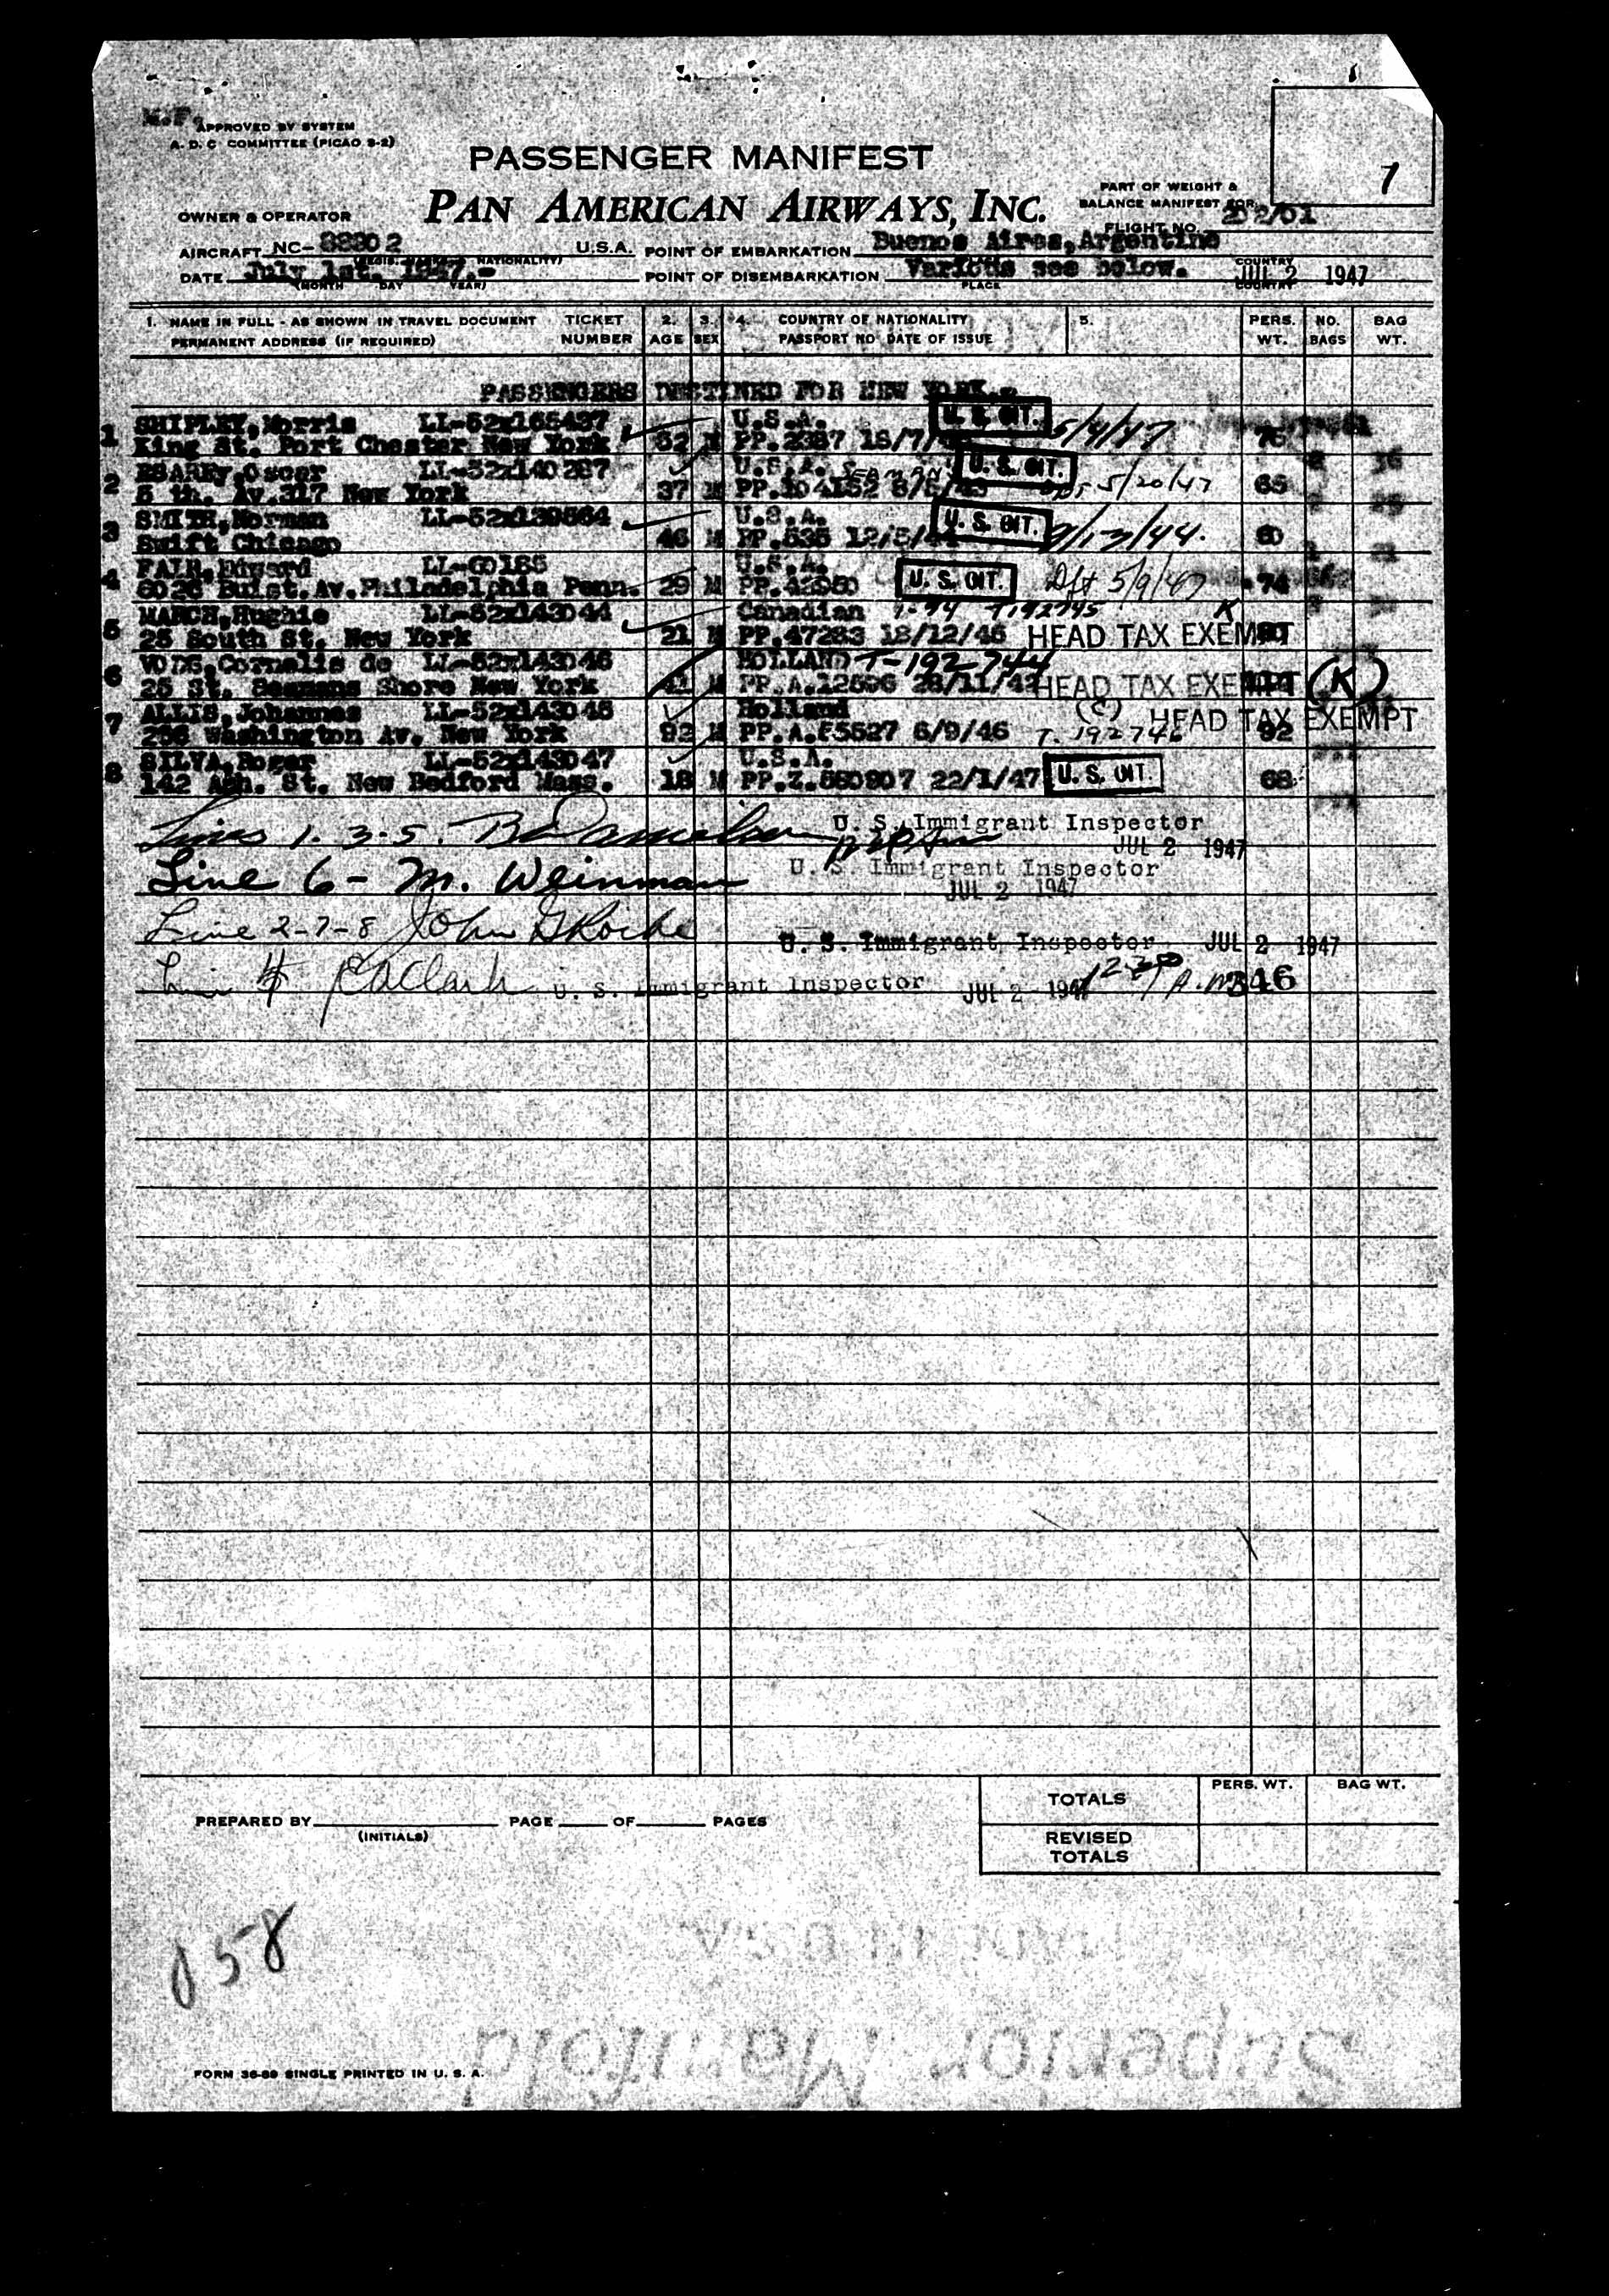 M.F.
APPROVED BY SYSTEM
A. D. C COMMITTEE (PICAO 9-2)
PASSENGER MANIFEST
PAN AMERICAN AIRWAYS, INC.
7
PART OF WEIGHT &
BALANCE MANIFEST FOR
FLIGHT NO. 202/01
OWNER & OPERATOR
AIRCRAFT NC-88902 U.S.A. POINT OF EMBARKATION Buenos Aires, Argentine
DATE July 1st. 1947.- POINT OF DISEMBARKATION Various see below. JUL 2 1947
(MONTH DAY YEAR) PLACE COUNTRY
1. NAME IN FULL - AS SHOWN IN TRAVEL DOCUMENT TICKET 2. 3. 4. COUNTRY OF NATIONALITY 5. PERS. NO. BAG
PERMANENT ADDRESS (IF REQUIRED) NUMBER AGE SEX PASSPORT NO DATE OF ISSUE WT. BAGS WT.
PASSENGERS DESTINED FOR NEW YORK.-
1 SHIPLEY, Morris LL-52x165437 U.S.A. U. S. CIT. 5/4/47
King St. Port Chester New York 52 M PP.2387 18/7/ 76
2 Oscar LL-52x140287 U.S.A. SEAMAN U. S. CIT. 5/20/47
5 th. Av. 317 New York 37 M PP.104152 65
3 SMITH, Norman LL-52x139564 U.S.A. U. S. CIT. 9/13/44.
Swift Chicago 46 M PP.535 12/5/44 80
4 Edward LL-60185 U.S.A. U. S. CIT. Dft 5/9/47
Av. Philadelphia Penn. 29 M PP.42950 74
5 MARCH, Hughie LL-52x143044 Canadian T-94 T192745 K
25 South St. New York 21 M PP.47283 18/12/46 HEAD TAX EXEMPT
6 VODG, Cornelis de LL-52x143046 HOLLAND T-192744
25 St. Seamans Shore New York 41 M PP.A.12596 28/11/42 HEAD TAX EXEMPT (K)
7 ALLIS, Johannes LL-52x143045 Holland (C) HEAD TAX EXEMPT
256 Washington Av. New York 92 M PP.A.E5527 6/9/46 T. 192746 92
8 SILVA, Roger LL-52x143047 U.S.A.
142 Ash. St. New Bedford Mass. 18 M PP.Z.550907 22/1/47 U. S. CIT. 68
Lines 1-3-5. U. S. Immigrant Inspector
JUL 2 1947
Line 6- M. Weinman U. S. Immigrant Inspector
JUL 2 1947
Line 2-7-8 John G Roche U. S. Immigrant Inspector JUL 2 1947
Line 4 Clark U. S. Immigrant Inspector JUL 2 1947 12 30 A.M. 346
PERS. WT. BAG WT.
TOTALS
PREPARED BY PAGE OF PAGES
(INITIALS)
REVISED
TOTALS
858
Superior Manifold
FORM 36-89 SINGLE PRINTED IN U. S. A.